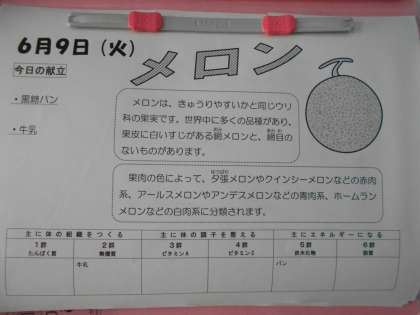 6月9日（火）
メロン
今日の献立
・黒糖パン
・牛乳
メロンは、きゅうりやすいかと同じウリ
科の果実です。世界中に多くの品種があり、
果皮に白いすじがある網メロンと、網目の
ないものがあります。
果肉の色によって、夕張メロンやクインシーメロンなどの赤肉
系、アールスメロンやアンデスメロンなどの青肉系、ホームラン
メロンなどの白肉系に分類されます。
主に体の組織をつくる 主に体の調子を整える 主にエネルギーになる
1群 2群 3群 4群 5群 6群
たんぱく質 無機質 ビタミンA ビタミンC 炭水化物 脂質
牛乳 パン